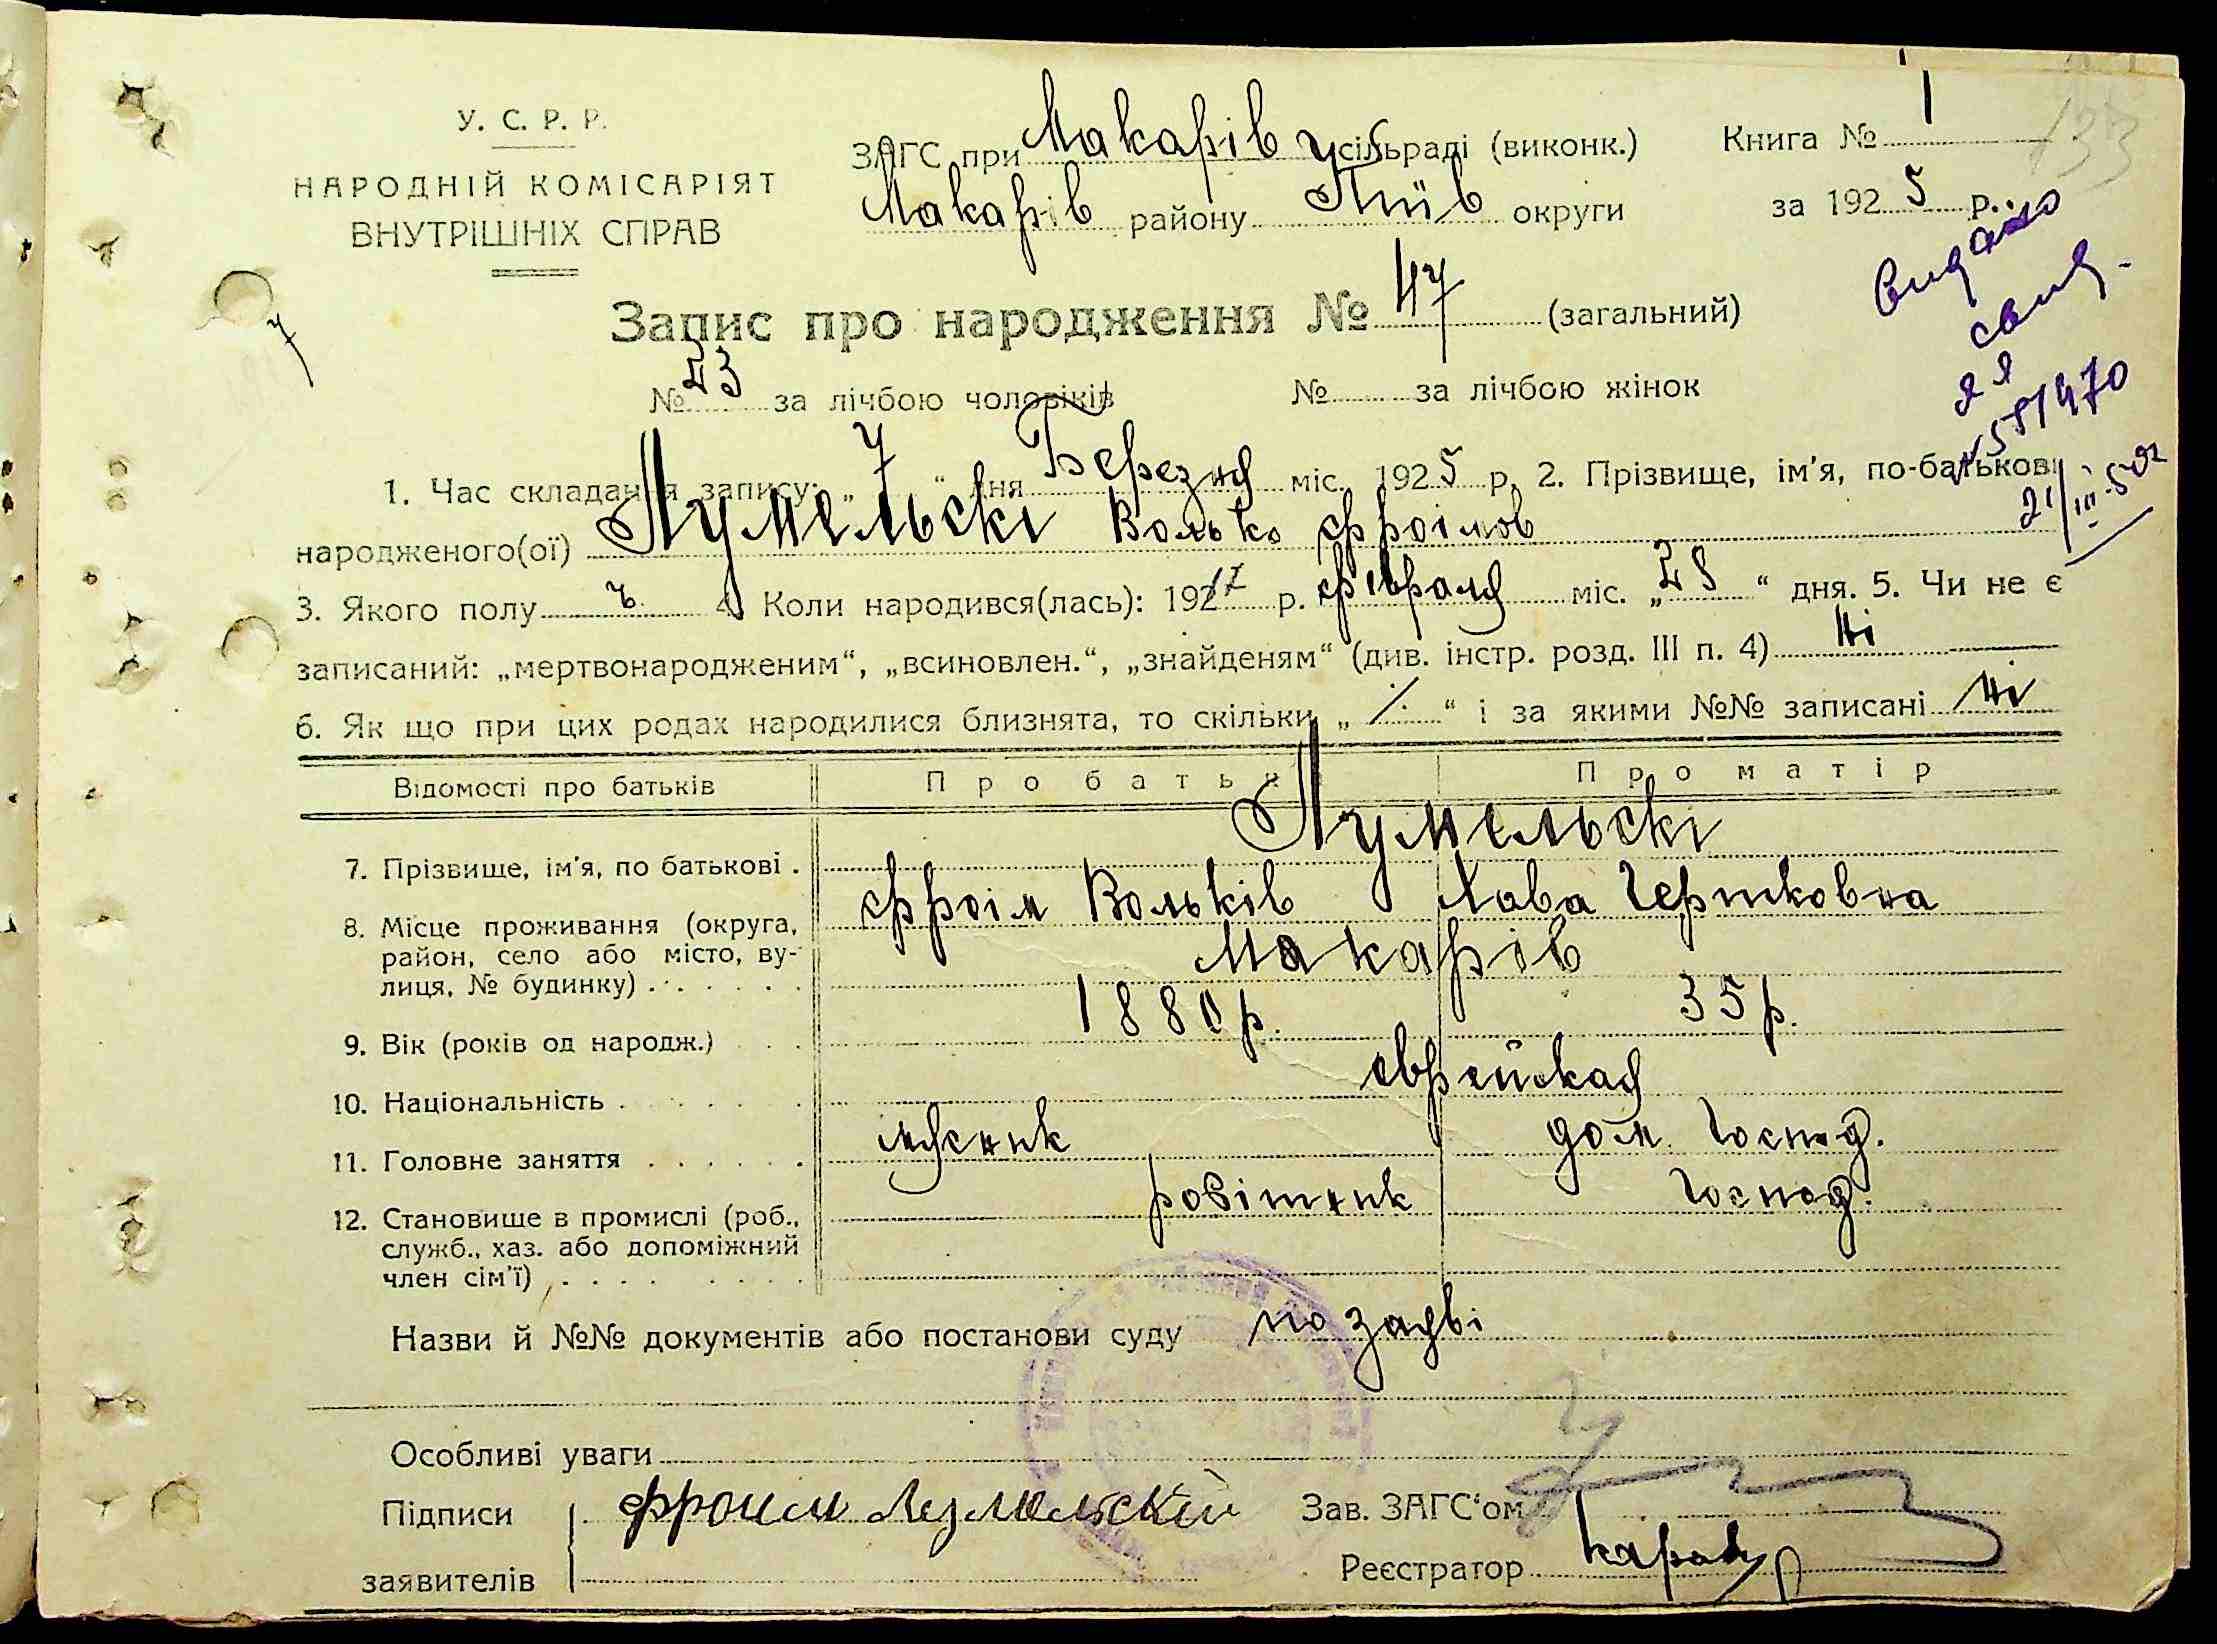 У. С. Р. Р.
НАРОДНІЙ КОМІСАРІЯТ
ВНУТРІШНІХ СПРАВ
ЗАГС при Макарів сільраді (виконк.)
Макарів району Київ округи
Книга № 1
за 1925 р.
133
видано
свид.
581470
Запис про народження № 47 (загальний)
№ 23 за лічбою чоловіків № за лічбою жінок
1. Час складання запису: „ 7 “ дня Березня міс. 1925 р. 2. Прізвище, ім'я, по-батькові
народженого(ої) Лумельскі Волько Фроімов
3. Якого полу ч. 4. Коли народився(лась): 1917 р. Февраля міс. „ 28 “ дня. 5. Чи не є
записаний: „мертвонародженим“, „всиновлен.“, „знайденям“ (див. інстр. розд. III п. 4) ні
6. Як що при цих родах народилися близнята, то скільки „ “ і за якими №№ записані ні
Відомості про батьків Про батька Про матір
Лумельскі
7. Прізвище, ім'я, по батькові . Фроім Вольків Хава Гершковна
8. Місце проживання (округа, район, село або місто, вулиця, № будинку) Макарів
9. Вік (років од народж.) 1880 р. 35 р.
10. Національність еврейская
11. Головне заняття мясник дом. господ.
12. Становище в промислі (роб., служб., хаз. або допоміжний член сім'ї) робітник господ.
Назви й №№ документів або постанови суду по заяві
Особливі уваги
Підписи
заявителів
Фроим
Зав. ЗАГС'ом
Реєстратор